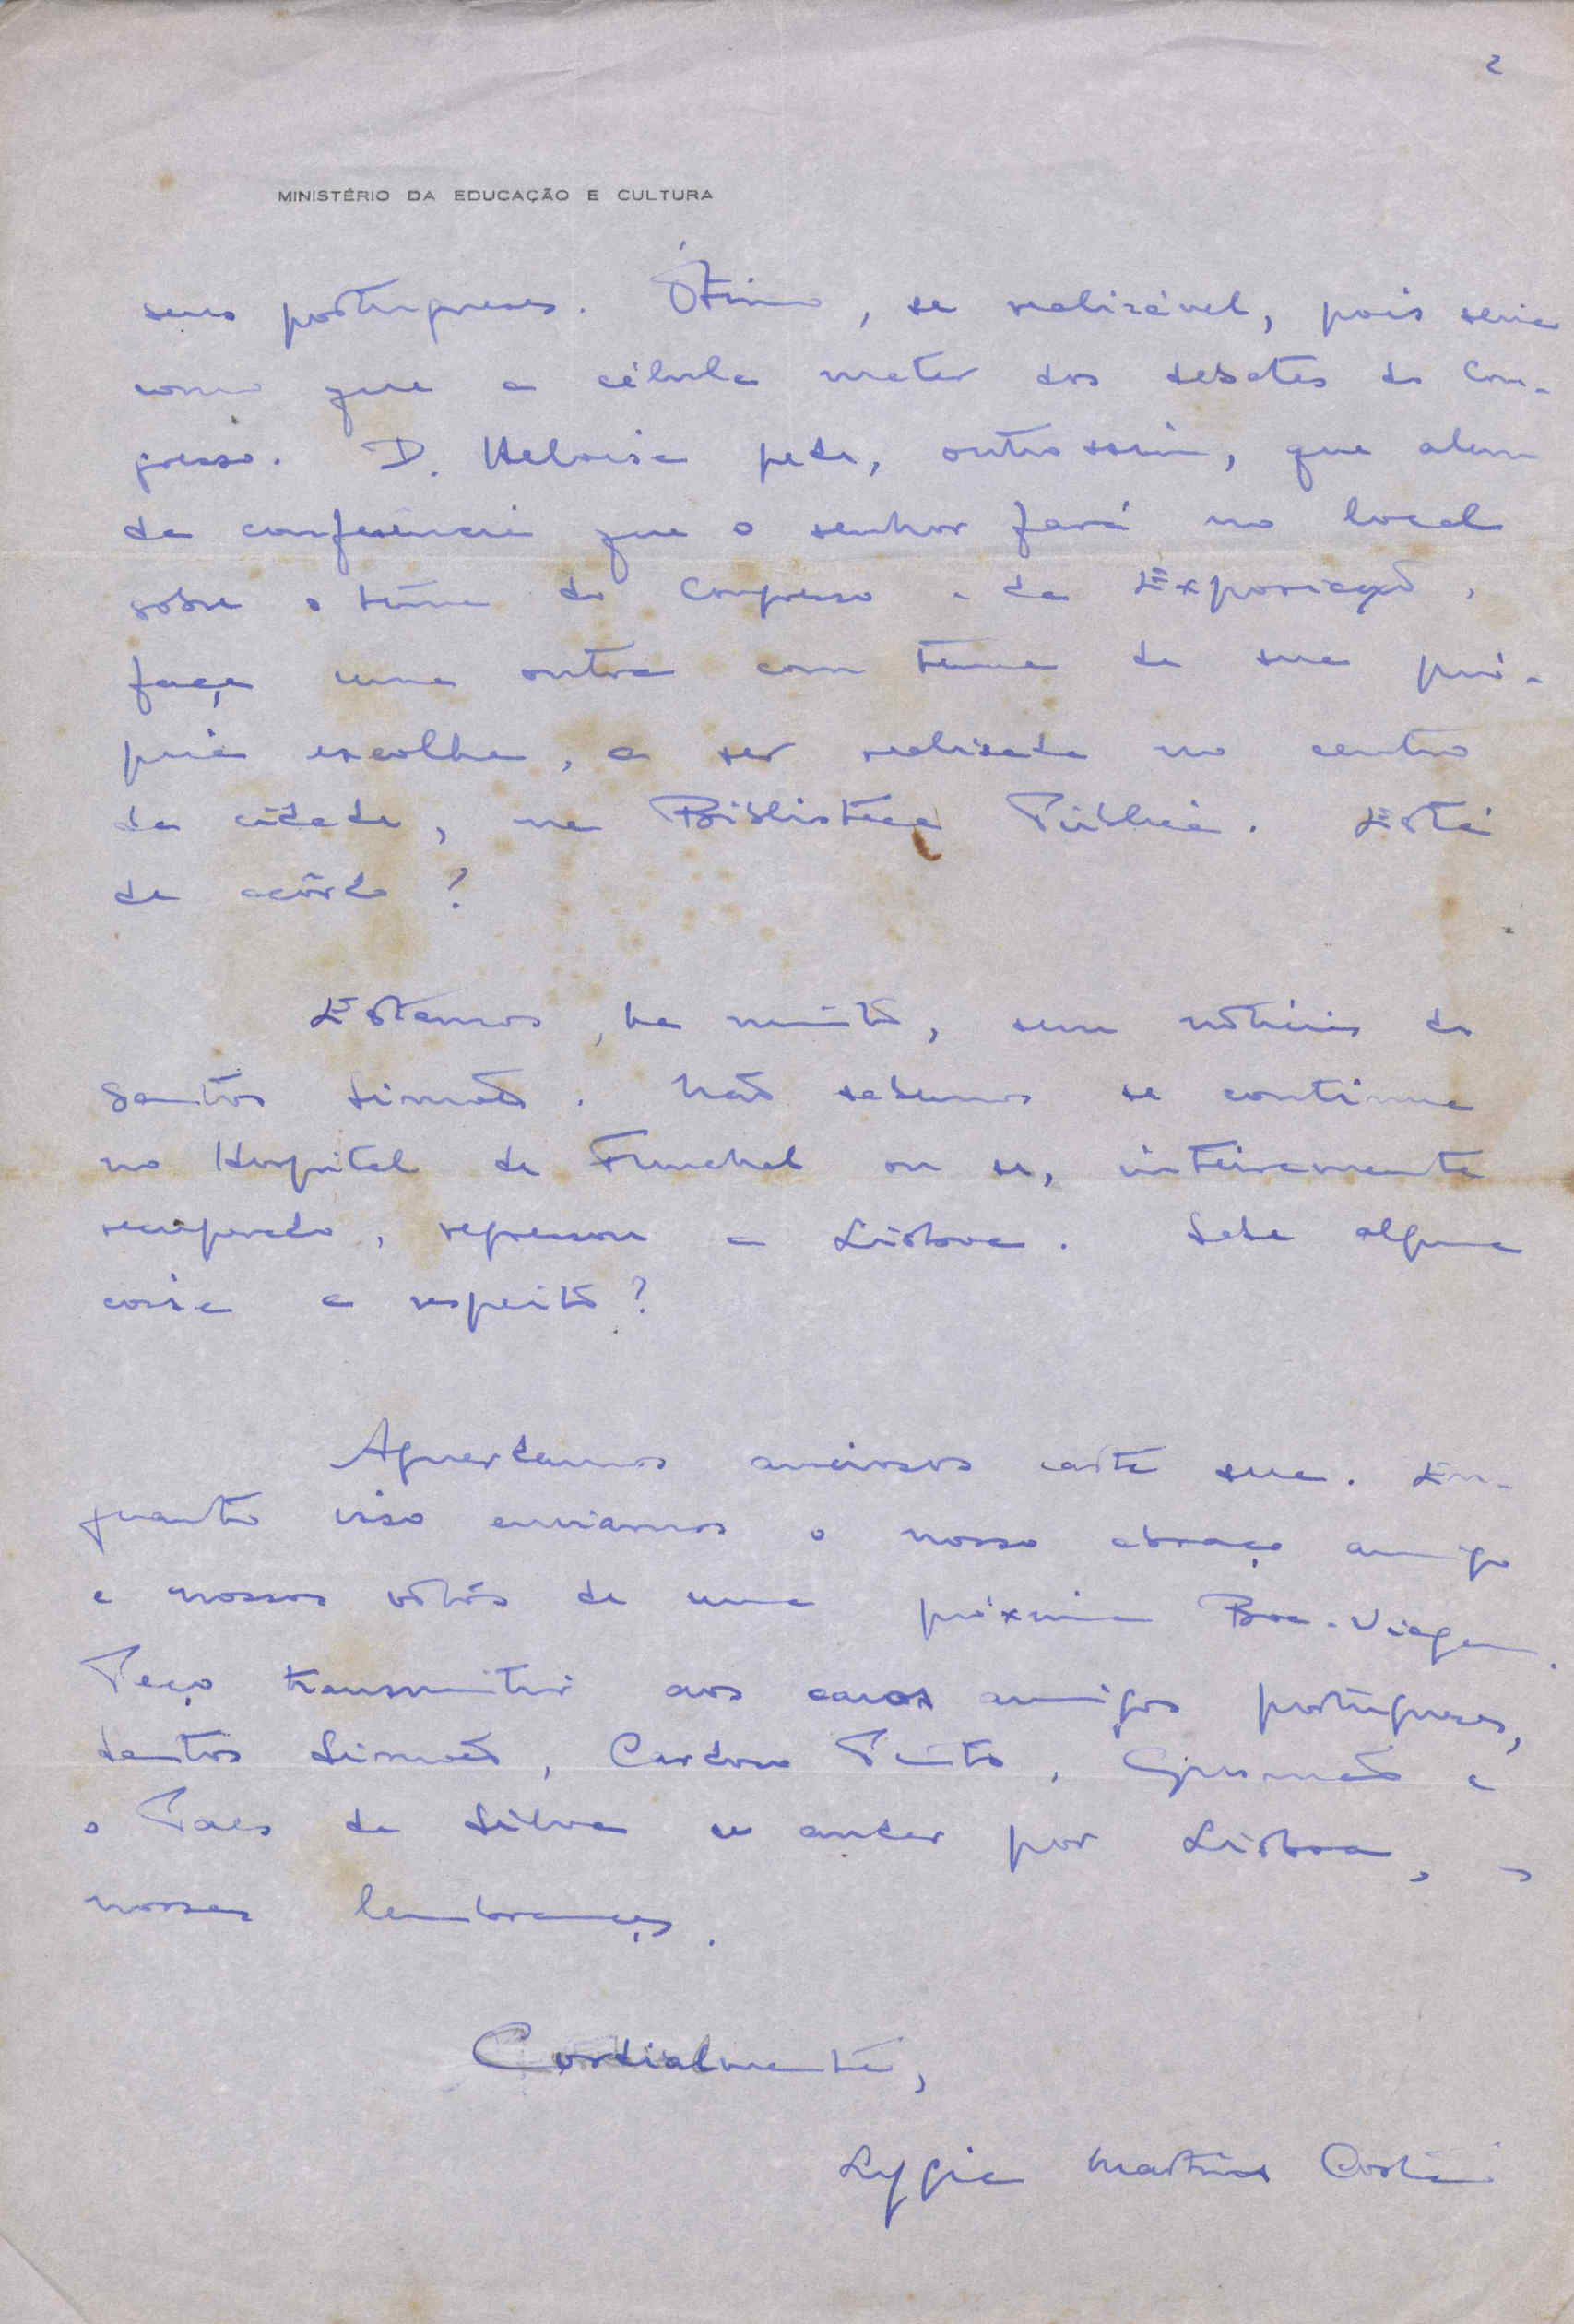 2
MINISTÉRIO DA EDUCAÇÃO E CULTURA
seus portugueses. Ótimo, se realizável, pois seria
como que a célula mater dos debates do Con-
gresso. D. Heloisa pede, outrossim, que alem
da conferência que o senhor fará no local
sobre o tema do Congresso e da Exposição,
faça uma outra com tema de sua pró-
pria escolha, a ser realisada no centro
da cidade, na Biblioteca Pública. Está
de acôrdo?
Estamos, ha muito, sem notícias do
Santos Simões. Não sabemos se continua
no Hospital de Funchal ou se, inteiramente
recuperado, regressou a Lisboa. Sabe alguma
coisa a respeito?
Aguardamos anciosos carta sua. En-
quanto isso enviamos o nosso abraço amigo
e nossos votos de uma próxima Boa-Viagem.
Peço transmitir aos caros amigos portugueses,
Santos Simões, Cardoso Pinto, Gusmão e
o Paes da Silva se andar por Lisboa, as
nossas lembranças.
Cordialmente,
Lygia Martins Costa